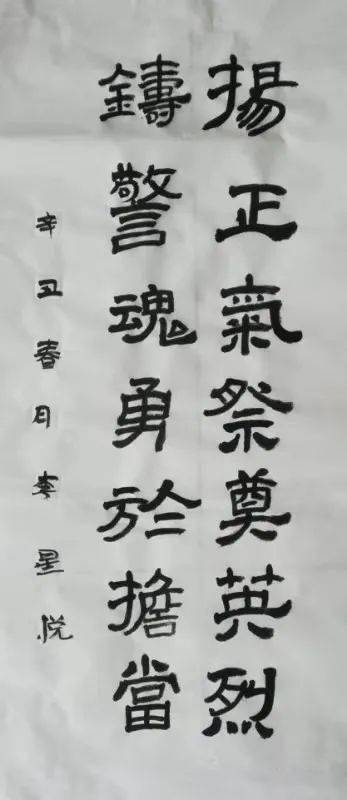 揚正氣祭奠英烈
鑄警魂勇於擔當
辛丑春月李星悦